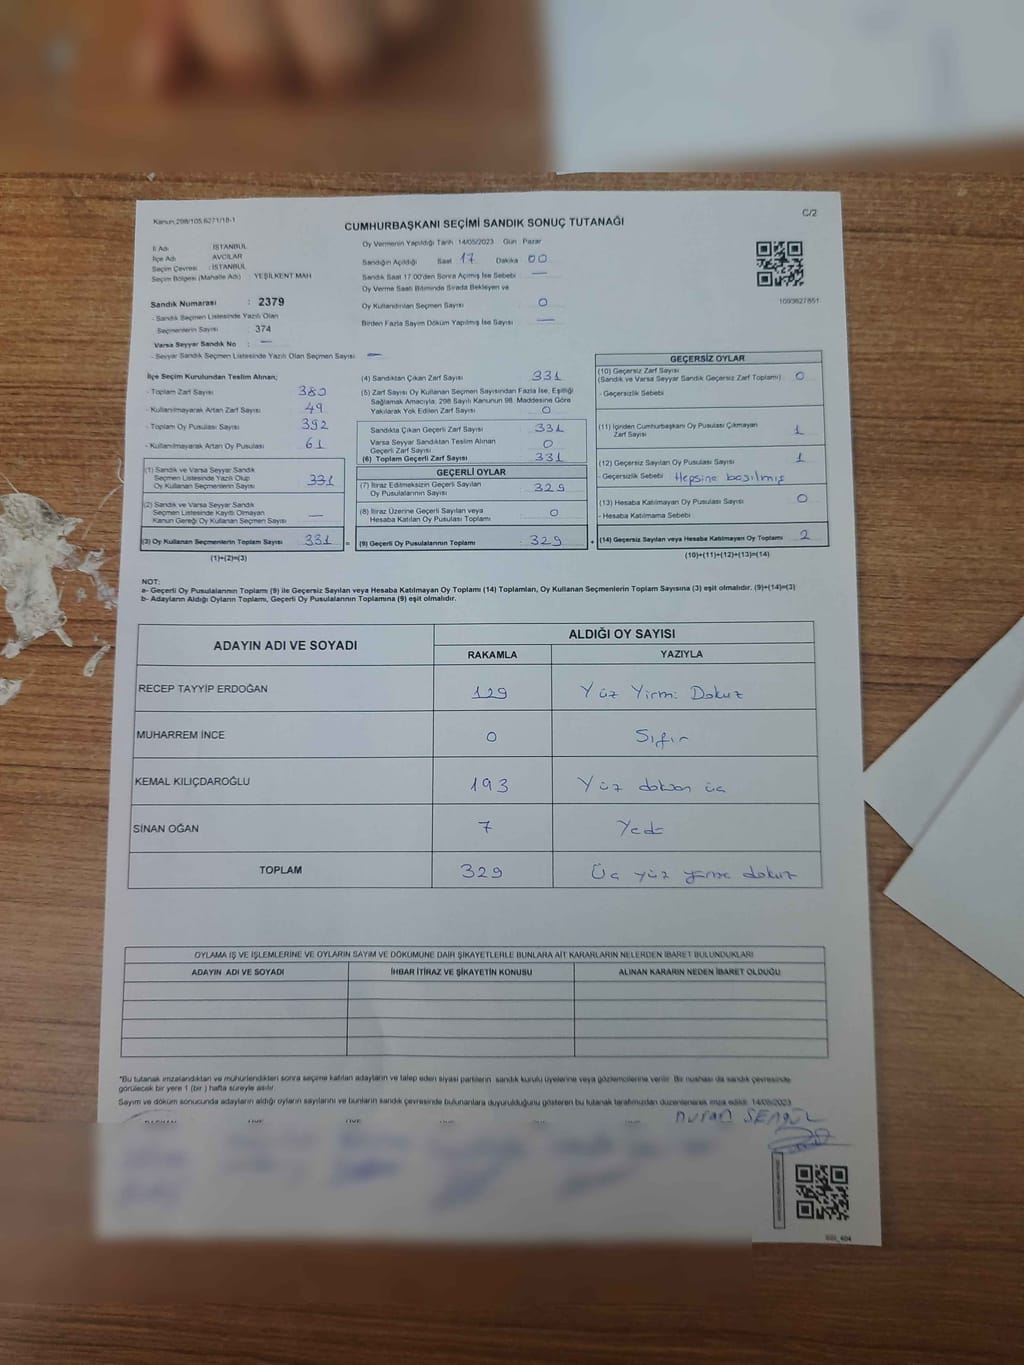 Kanun 298/105,6271/18-1
C/2
CUMHURBAŞKANI SEÇİMİ SANDIK SONUÇ TUTANAĞI
İl Adı : İSTANBUL
İlçe Adı : AVCILAR
Seçim Çevresi : İSTANBUL
Seçim Bölgesi (Mahalle Adı) : YEŞİLKENT MAH
Sandık Numarası : 2379
- Sandık Seçmen Listesinde Yazılı Olan
Seçmenlerin Sayısı : 374
Varsa Seyyar Sandık No : —
- Seyyar Sandık Seçmen Listesinde Yazılı Olan Seçmen Sayısı : —
Oy Vermenin Yapıldığı Tarih 14/05/2023 Gün Pazar
Sandığın Açıldığı Saat 17 Dakika 00
Sandık Saat 17:00'den Sonra Açılmış İse Sebebi —
Oy Verme Saati Bitiminde Sırada Bekleyen ve
Oy Kullandırılan Seçmen Sayısı 0
Birden Fazla Sayım Döküm Yapılmış İse Sayısı —
1093627851
İlçe Seçim Kurulundan Teslim Alınan;
- Toplam Zarf Sayısı : 380
- Kullanılmayarak Artan Zarf Sayısı : 49
- Toplam Oy Pusulası Sayısı : 392
- Kullanılmayarak Artan Oy Pusulası : 61
(1) Sandık ve Varsa Seyyar Sandık
Seçmen Listesinde Yazılı Olup
Oy Kullanan Seçmenlerin Sayısı : 331
(2) Sandık ve Varsa Seyyar Sandık
Seçmen Listesinde Kayıtlı Olmayan
Kanun Gereği Oy Kullanan Seçmen Sayısı : —
(3) Oy Kullanan Seçmenlerin Toplam Sayısı : 331
(1)+(2)=(3)
(4) Sandıktan Çıkan Zarf Sayısı : 331
(5) Zarf Sayısı Oy Kullanan Seçmen Sayısından Fazla İse, Eşitliği
Sağlamak Amacıyla, 298 Sayılı Kanunun 98. Maddesine Göre
Yakılarak Yok Edilen Zarf Sayısı : 0
Sandıkta Çıkan Geçerli Zarf Sayısı : 331
Varsa Seyyar Sandıktan Teslim Alınan
Geçerli Zarf Sayısı : 0
(6) Toplam Geçerli Zarf Sayısı : 331
GEÇERLİ OYLAR
(7) İtiraz Edilmeksizin Geçerli Sayılan
Oy Pusulalarının Sayısı : 329
(8) İtiraz Üzerine Geçerli Sayılan veya
Hesaba Katılan Oy Pusulası Toplamı : 0
= (9) Geçerli Oy Pusulalarının Toplamı : 329 +
GEÇERSİZ OYLAR
(10) Geçersiz Zarf Sayısı
(Sandık ve Varsa Seyyar Sandık Geçersiz Zarf Toplamı) : 0
- Geçersizlik Sebebi :
(11) İçinden Cumhurbaşkanı Oy Pusulası Çıkmayan
Zarf Sayısı : 1
(12) Geçersiz Sayılan Oy Pusulası Sayısı : 1
- Geçersizlik Sebebi : Hepsine basılmış
(13) Hesaba Katılmayan Oy Pusulası Sayısı : 0
- Hesaba Katılmama Sebebi :
(14) Geçersiz Sayılan veya Hesaba Katılmayan Oy Toplamı : 2
(10)+(11)+(12)+(13)=(14)
NOT:
a- Geçerli Oy Pusulalarının Toplamı (9) ile Geçersiz Sayılan veya Hesaba Katılmayan Oy Toplamı (14) Toplamları, Oy Kullanan Seçmenlerin Toplam Sayısına (3) eşit olmalıdır. (9)+(14)=(3)
b- Adayların Aldığı Oyların Toplamı, Geçerli Oy Pusulalarının Toplamına (9) eşit olmalıdır.
ADAYIN ADI VE SOYADI
ALDIĞI OY SAYISI
RAKAMLA YAZIYLA
RECEP TAYYİP ERDOĞAN 129 Yüz Yirmi Dokuz
MUHARREM İNCE 0 Sıfır
KEMAL KILIÇDAROĞLU 193 Yüz doksan üç
SİNAN OĞAN 7 Yedi
TOPLAM 329 Üç yüz yirmi dokuz
OYLAMA İŞ VE İŞLEMLERİNE VE OYLARIN SAYIM VE DÖKÜMÜNE DAİR ŞİKAYETLERLE BUNLARA AİT KARARLARIN NELERDEN İBARET BULUNDUKLARI
ADAYIN ADI VE SOYADI İHBAR İTİRAZ VE ŞİKAYETİN KONUSU ALINAN KARARIN NEDEN İBARET OLDUĞU
*Bu tutanak imzalandıktan ve mühürlendikten sonra seçime katılan adayların ve talep eden siyasi partilerin sandık kurulu üyelerine veya gözlemcilerine verilir. Bir nüshası da sandık çevresinde
görülecek bir yere 1 (bir ) hafta süreyle asılır.
Sayım ve döküm sonucunda adayların aldığı oyların sayılarını ve bunların sandık çevresinde bulunanlara duyurulduğunu gösteren bu tutanak tarafımızdan düzenlenerek imza edildi. 14/05/2023